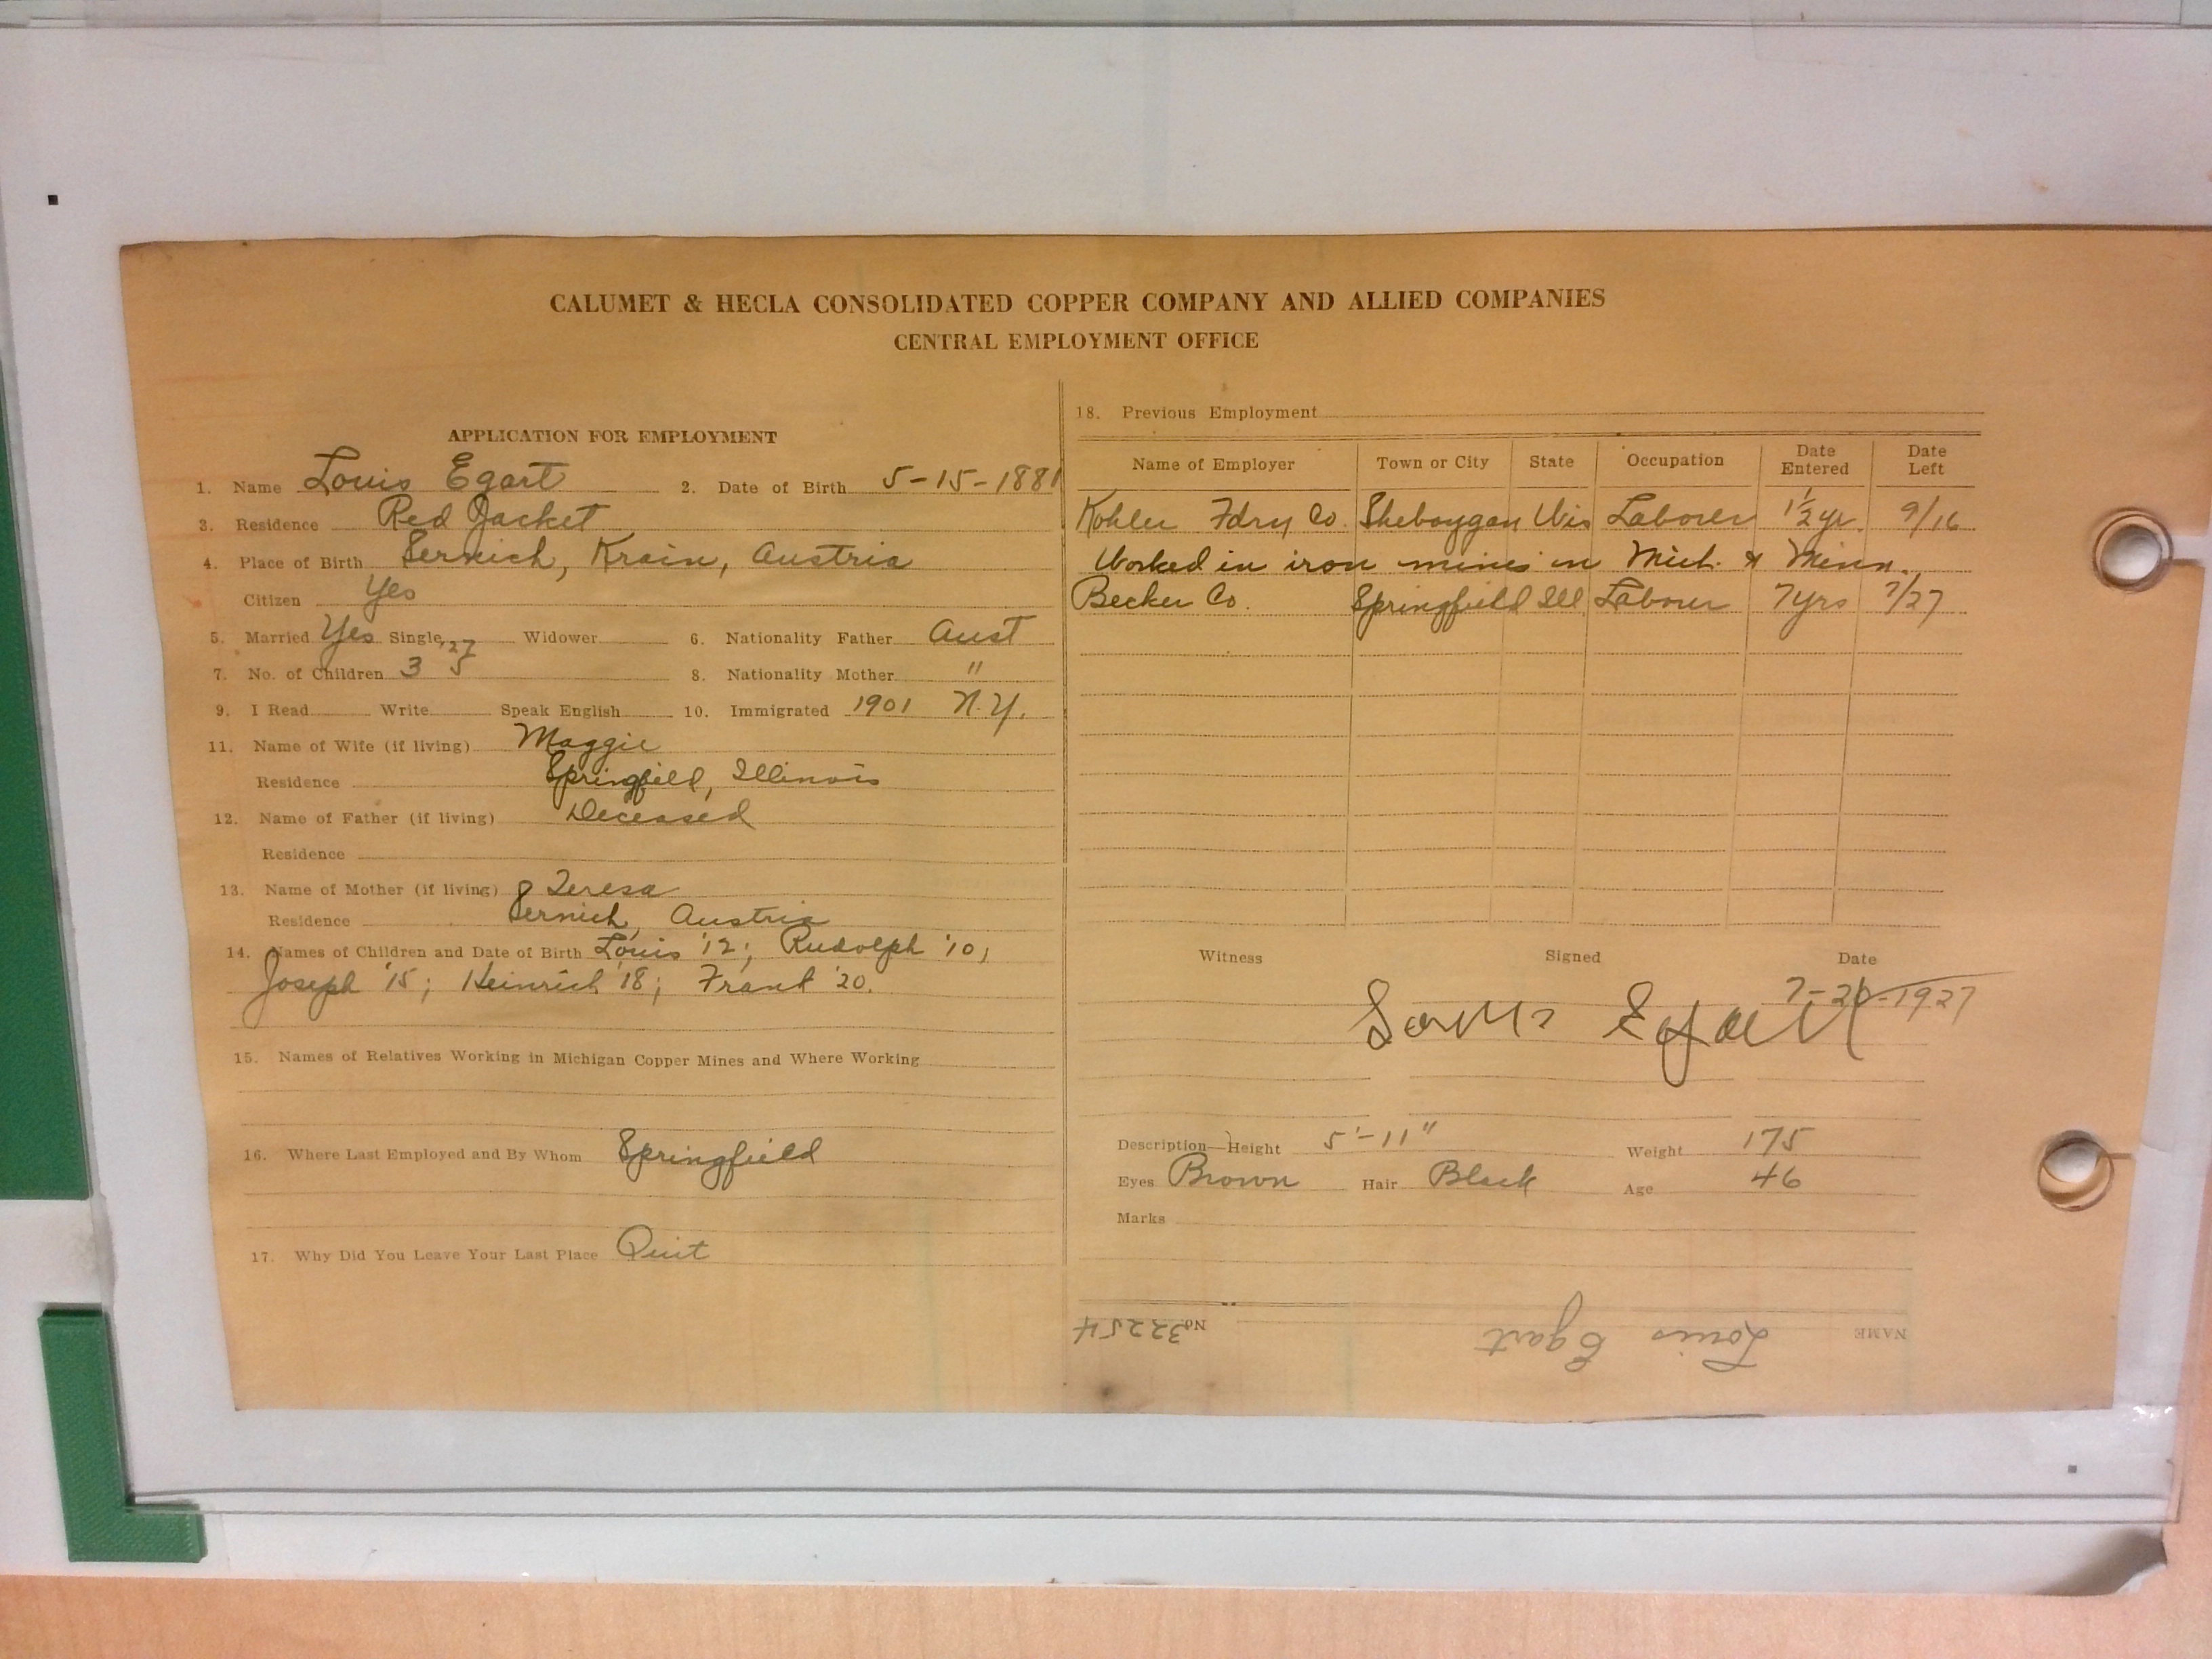 CALUMET & HECLA CONSOLIDATED COPPER COMPANY AND ALLIED COMPANIES
CENTRAL EMPLOYMENT OFFICE
APPLICATION FOR EMPLOYMENT
1. Name Louis Egart 2. Date of Birth 5-15-1881
3. Residence Red Jacket
4. Place of Birth Sernich, Krain, Austria
Citizen Yes
5. Married Yes Single Widower 6. Nationality Father Aust
7. No. of Children 3 '27 5 8. Nationality Mother "
9. I Read Write Speak English 10. Immigrated 1901 N.Y.
11. Name of Wife (if living) Maggie
Residence Springfield, Illinois
12. Name of Father (if living) Deceased
Residence
13. Name of Mother (if living) Teresa
Residence Sernich, Austria
14. Names of Children and Date of Birth Louis '12; Rudolph '10;
Joseph '15; Heinrich '18; Frank '20.
15. Names of Relatives Working in Michigan Copper Mines and Where Working
16. Where Last Employed and By Whom Springfield
17. Why Did You Leave Your Last Place Quit
18. Previous Employment
Name of Employer Town or City State Occupation Date Entered Date Left
Kohler Fdry Co. Sheboygan Wis Laborer 1½ yr. 9/16
Worked in iron mines in Mich. & Minn.
Becker Co. Springfield Ill Laborer 7yrs 7/27
Witness Signed Date
7-20-1927
Louis Egart
Description—Height 5'-11" Weight 175
Eyes Brown Hair Black Age 46
Marks
NAME Louis Egart No. 32254